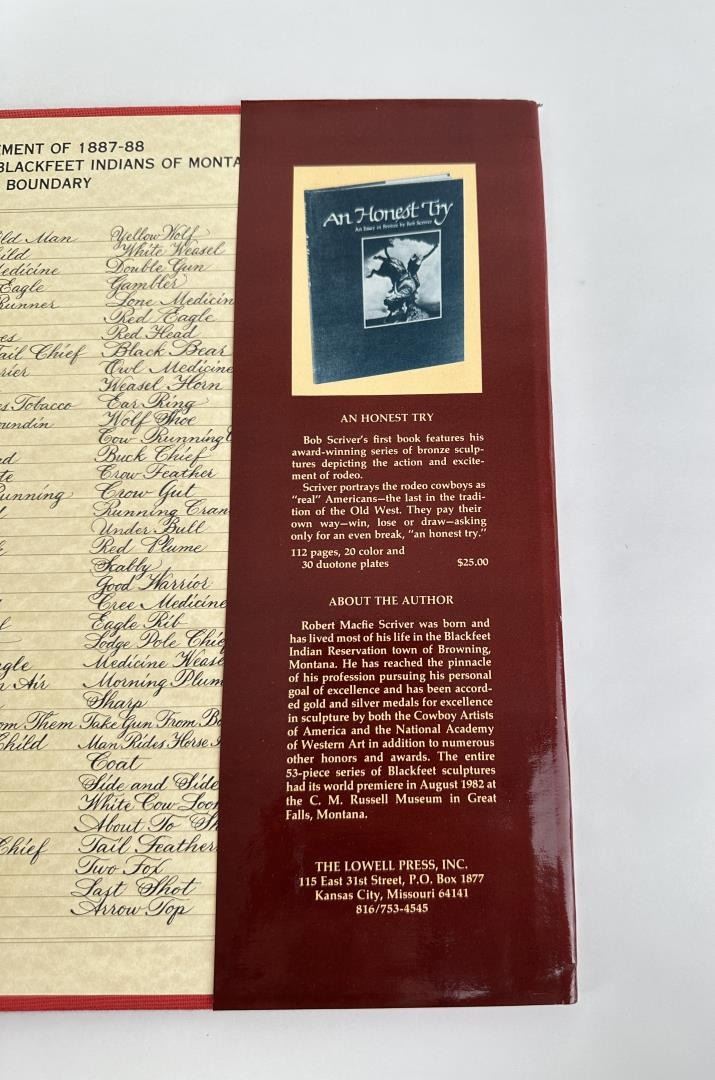 EMENT OF 1887-88
BLACKFEET INDIANS OF MONTA
BOUNDARY
ld Man Yellow Wolf
hild White Weasel
Medicine Double Gun
Eagle Gambler
Runner Lone Medicin
Red Eagle
es Red Head
ail Chief Black Bear
rier Owl Medicine
Weasel Horn
es Tobacco Ear Ring
oundin Wolf Shoe
Cow Running
d Buck Chief
te Crow Feather
unning Crow Gut
Running Cran
Under Bull
Red Plume
Scabby
Good Warrior
Cree Medicine
Eagle Rib
Lodge Pole Chie
gle Medicine Weas
n Air Morning Plum
Sharp
om Them Take Gun From B
Child Man Rides Horse
Coat
Side and Side
White Cow Loo
About To Sh
Chief Tail Feather
Two Fox
Last Shot
Arrow Top
An Honest Try
An Essay in Bronze by Bob Scriver
AN HONEST TRY
Bob Scriver's first book features his
award-winning series of bronze sculp-
tures depicting the action and excite-
ment of rodeo.
Scriver portrays the rodeo cowboys as
"real" Americans—the last in the tradi-
tion of the Old West. They pay their
own way—win, lose or draw—asking
only for an even break, "an honest try."
112 pages, 20 color and
30 duotone plates $25.00
ABOUT THE AUTHOR
Robert Macfie Scriver was born and
has lived most of his life in the Blackfeet
Indian Reservation town of Browning,
Montana. He has reached the pinnacle
of his profession pursuing his personal
goal of excellence and has been accord-
ed gold and silver medals for excellence
in sculpture by both the Cowboy Artists
of America and the National Academy
of Western Art in addition to numerous
other honors and awards. The entire
53-piece series of Blackfeet sculptures
had its world premiere in August 1982 at
the C. M. Russell Museum in Great
Falls, Montana.
THE LOWELL PRESS, INC.
115 East 31st Street, P.O. Box 1877
Kansas City, Missouri 64141
816/753-4545